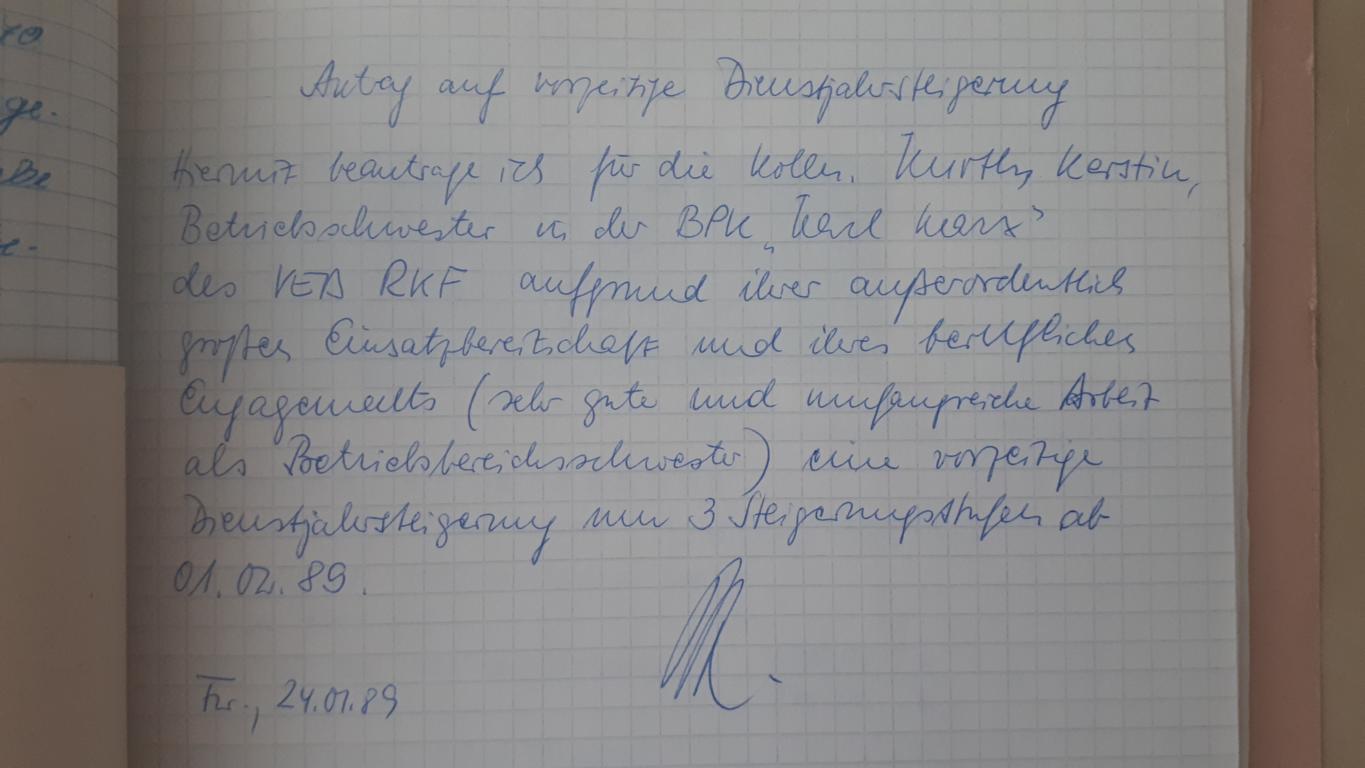 Antrag auf vorzeitige Dienstjahrsteigerung
Hiermit beantrage ich für die Kolln. Kurth, Kerstin,
Betriebsschwester in der BPK "Karl Marx"
des VEB RKF aufgrund ihrer außerordentlich
großen Einsatzbereitschaft und ihres beruflichen
Engagements (sehr gute und umfangreiche Arbeit
als Betriebsbereichsschwester) eine vorzeitige
Dienstjahrsteigerung um 3 Steigerungsstufen ab
01.02.89.
24.01.89
ge.